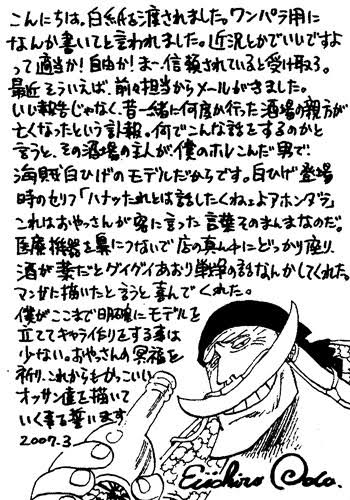 こんにちは。白紙を渡されました。ワンパラ用に
なんか書いてと言われました。近況とかでいいですよ
って適当か!自由か!ま〜信頼されていると受け取ろう。
最近そういえば、前々担当からメールがきました。
いい報告じゃなく、昔一緒に何度か行った酒場の親方が
亡くなったという訃報。何でこんな話をするのかと
言うと、その酒場の主人が、僕のホレこんだ男で、
海賊白ひげのモデルだからです。白ひげ登場
時のセリフ「ハナッたれとは話したくねェよアホンダラ」
これはおやっさんが客に言った言葉そのまんまなのだ。
医療機器を鼻につないで店の真ん中にどっかり座り、
酒が薬だとグイグイあおり戦争の話なんかしてくれた。
マンガに描いたと言うと喜んでくれた。
僕がここまで明確にモデルを
立ててキャラ作りをする事は
少ない。おやさんの冥福を
祈り、これからもかっこいい
オッサン達を描いて
いく事を誓います
2007.3.
Eiichiro Oda.